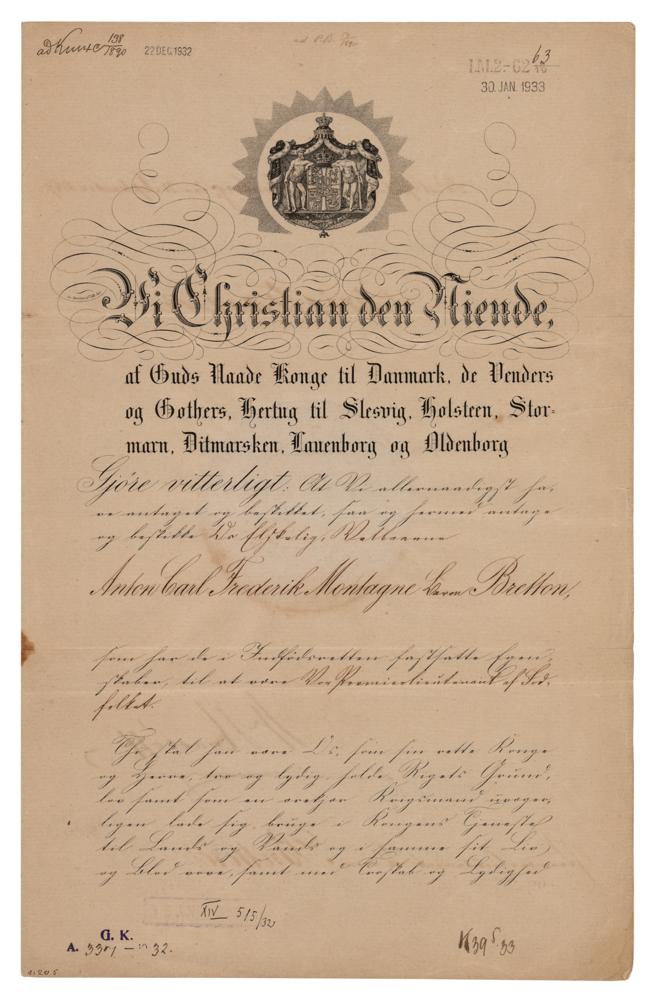 ad Kunx C 198/1890
22 DEC. 1932
63
I.M.2.-62
30. JAN. 1933
Vi Christian den Niende,
af Guds Naade Konge til Danmark, de Venders
og Gothers, Hertug til Slesvig, Holsteen, Stor=
marn, Ditmarsken, Lauenborg og Oldenborg
Gjöre vitterligt: At Vi allernaadigst ha,
ve antaget og beskikket, saa og hermed antage
og beskikke Os Elskelig, Velbaarne
Anton Carl Frederik Montagne Baron Bretton,
som har de i Indfödsretten fastsatte Egen,
skaber, til at være Vor Premierlieutenant af Fod,
folket.
Thi skal han være Os, som sin rette Konge
og Herre, tro og lydig, holde Rigets Grund,
lov samt som en ærekjær Krigsmand uvæger,
ligen lade sig bruge i Kongens Tjeneste
til Lands og Vands og i samme sit Liv
og Blod vove, samt med Troskab og Lydighed
XIV 515/32
G. K.
A. 3301 - 32.
K 39 33